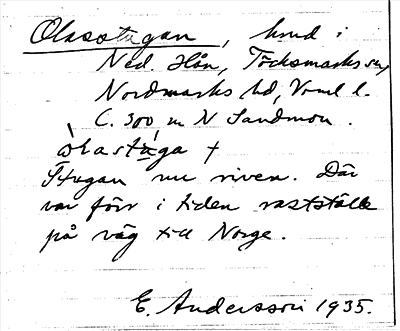 Olasstugan, hmd i
Ned. Hån, Töcksmarks sn,
Nordmarks hd, Vrml l.
C. 300 m N Sandmon.
òlastù̀ga +
Stugan nu riven. Där
var förr i tiden rastställe
på väg till Norge.
E. Andersson 1935.